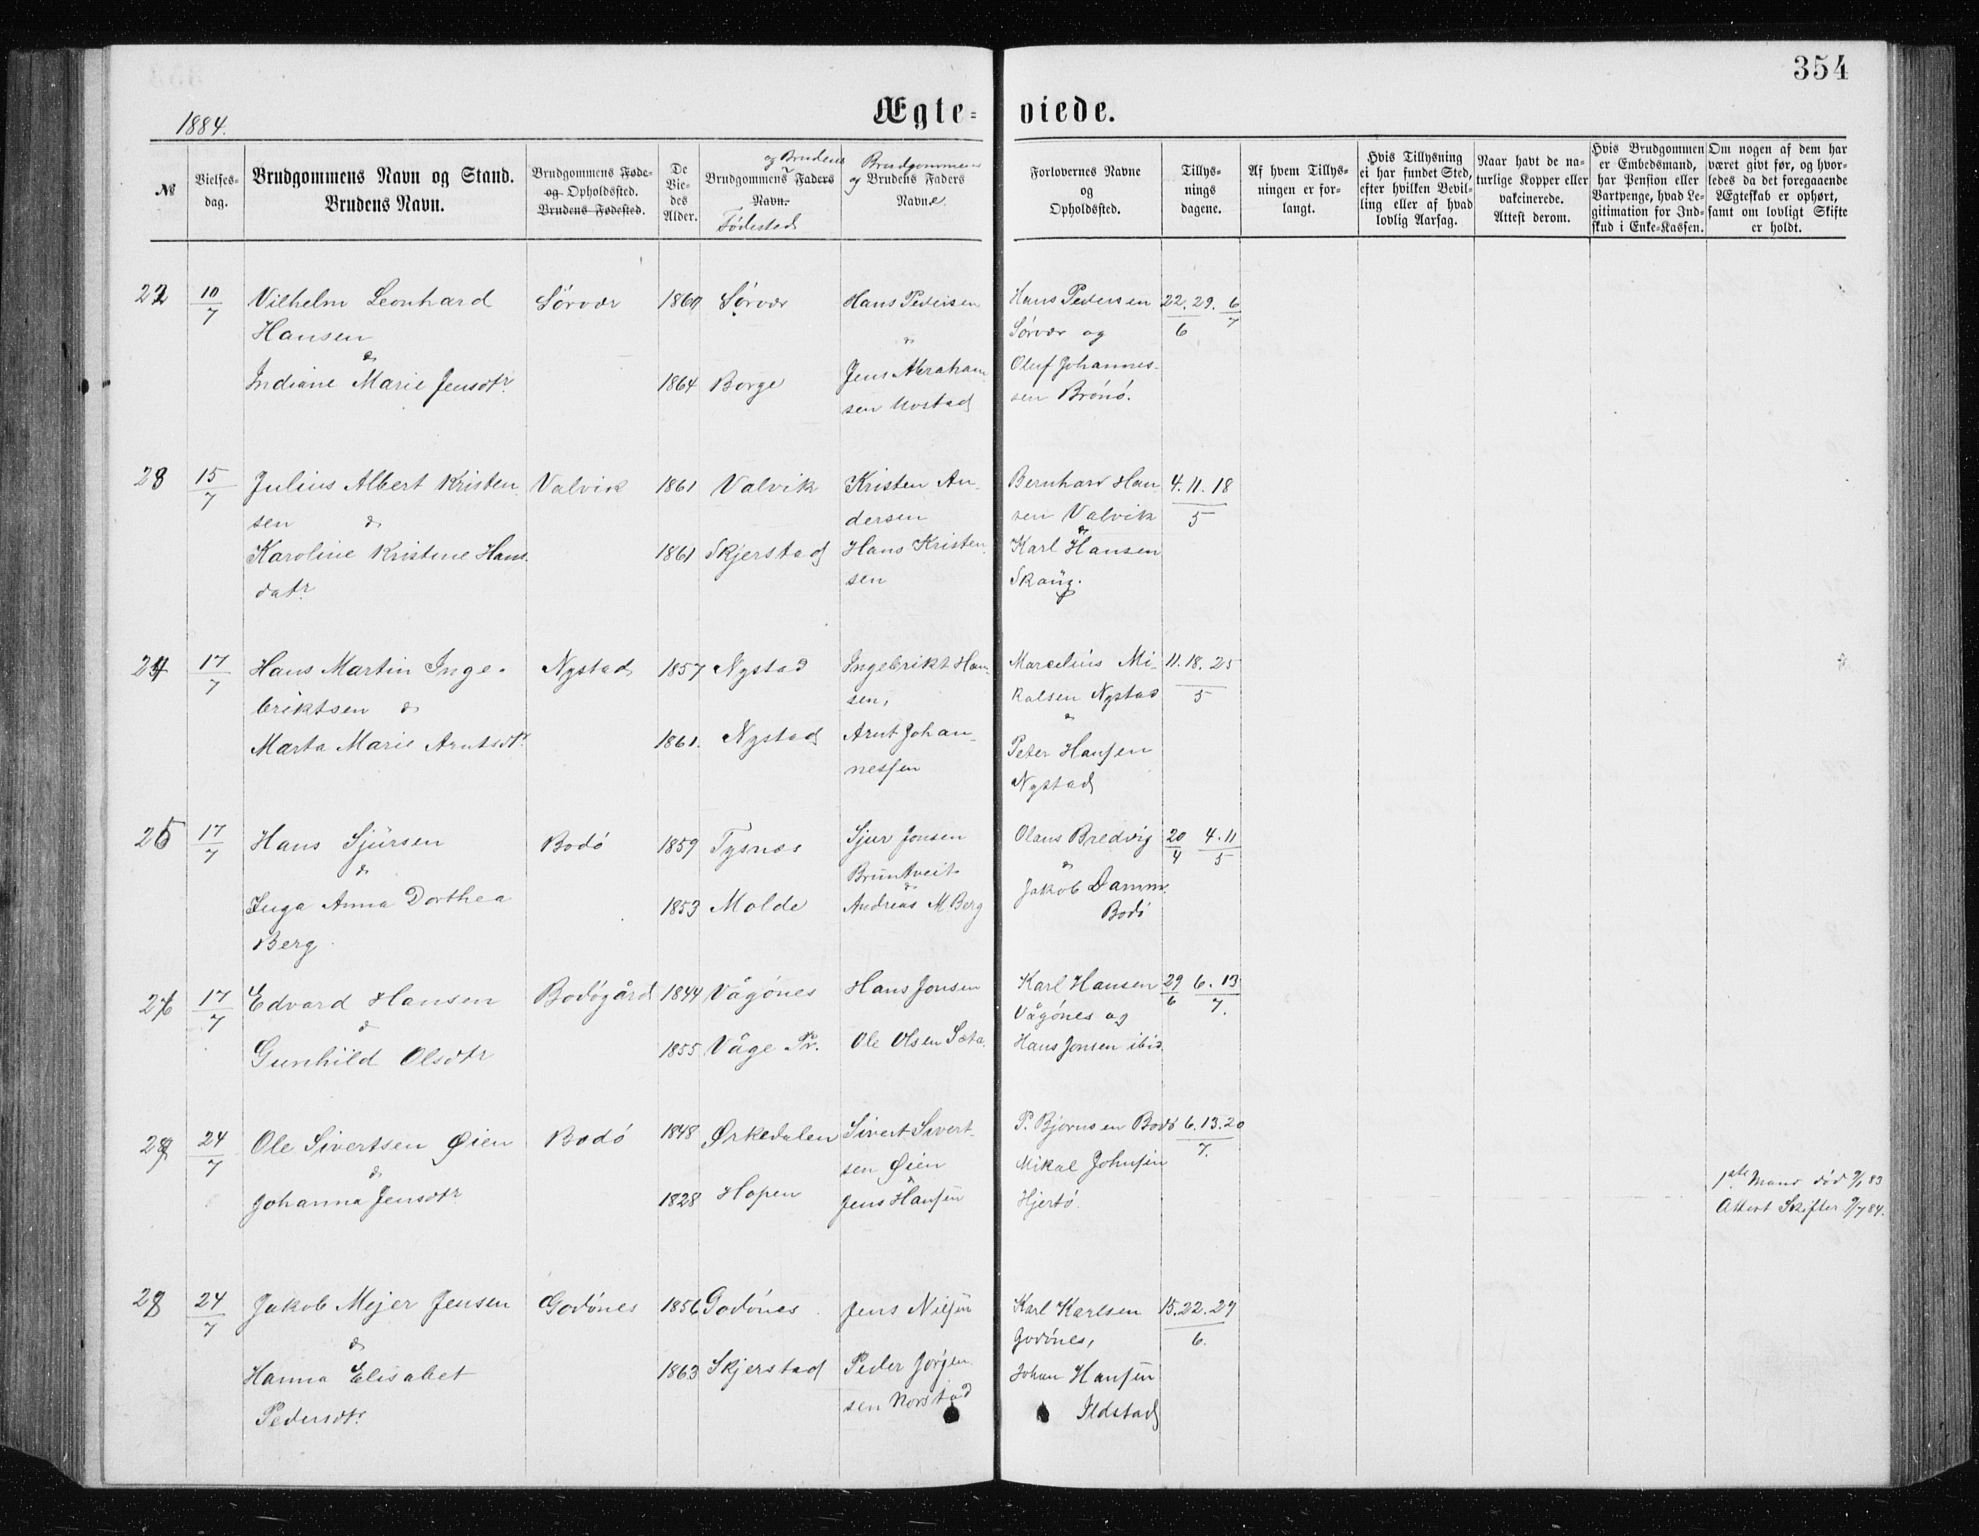 354
Ægte-viede.
1884.
№
Vielses-
dag.
Brudgommens Navn og Stand.
Brudens Navn.
Brudgommens Føde-
og Opholdssted.
Brudens Fødested.
De
Vie-
des
Alder.
og Brudens
Brudgommens Faders
Navn.
Fødested
Brudgommens
og Brudens Faders
Navne
Forlovernes Navne
og
Opholdssted.
Tillys-
nings
dagene.
Af hvem Tillys-
ningen er for-
langt.
Hvis Tillysning
ei har fundet Sted,
efter hvilken Bevil-
ling eller af hvad
lovlig Aarsag.
Naar havt de na-
turlige Kopper eller
vakcinerede.
Attest derom.
Hvis Brudgommen
er Embedsmand,
har Pension eller
Vartpenge, hvad Le-
gitimation for Ind-
skud i Enke-Kassen.
Om nogen af dem har
været givt før, og hvor-
ledes da det foregaaende
Ægteskab er ophørt,
samt om lovligt Skifte
er holdt.
22 10/7 Vilhelm Leonhard
Hansen
&
Indiane Marie Jensdtr.
Sörvær
1860 Sörvær
1864 Borge
Hans Pedersen
"
Jens Abraham-
sen Mostad
Hans Pedersen
Sörvær og
Oluf Johannes-
sen Brönö.
22. 29. 6
6 7
23 15/7 Julius Albert Kristen-
sen &
Karoline Kristine Hans-
datr.
Valvik
1861 Valvik
1861 Skjerstad
Kristen An-
dersen
Hans Kristen-
sen
Bernhard Han-
sen Valvik
&
Karl Hansen
Skaug.
4. 11. 18
5
24 17/7 Hans Martin Inge-
briktsen &
Marta Marie Arntsdtr.
Nystad
1857 Nystad
1861. Nystad
Ingebrikt Han-
sen,
Arnt Johan-
nessen
Marcelius Mi-
kalsen Nystad
&
Peter Hansen
Nystad
11. 18. 25
5
25 17/7 Hans Sjursen
&
Inga Anna Dorthea
Berg
Bodö
1859 Tysnæs
1853 Molde
Sjur Jonsen
Bruntveit
&
Andreas M Berg
Olaus Bredvig
&
Jakob Damm.
Bodö
20 4. 11
4 5
26 17/7 Edvard Hansen
&
Gunhild Olsdtr
Bodøgård
1844 Vågönes
1855 Våge Pr.
Hans Jonsen
Ole Olsen Sæta.
Karl Hansen
Vågönes og
Hans Jonsen ibid
29 6. 13
6 7.
27 24/7 Ole Sivertsen Øien
&
Johanna Jensdtr
Bodö
1848 Ørkedalen
1828 Hopen
Sivert Sivert-
sen Øien
&
Jens Hansen
P. Bjørnsen Bodö
Mikal Johnsen
Hjertö.
6. 13. 20
7.
1ste Mand död
Attest Skifter 9/7 84.
28 24/7 Jakob Mejer Jensen
&
Hanna Elisabet
Pedersdtr.
Godönes
1856 Godönes
1863 Skjerstad
Jens Nilsen
Peder Jørgen-
sen Norstad
Karl Karlsen
Godönes,
Johan Hansen
Ildstad
15. 22. 29
6.